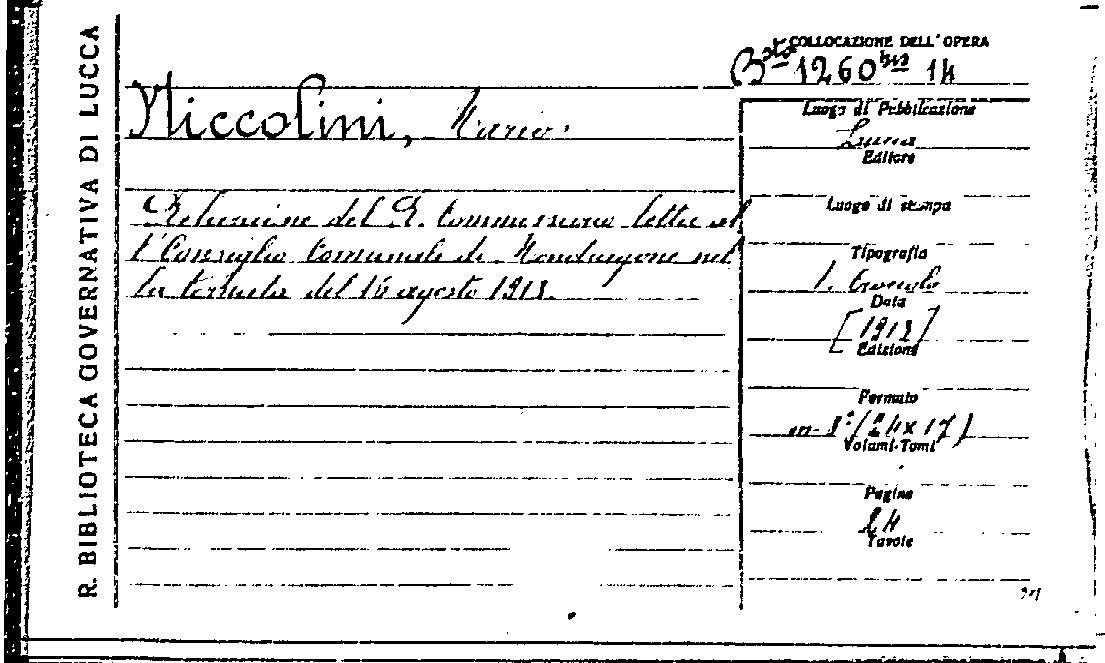 R. BIBLIOTECA GOVERNATIVA DI LUCCA
COLLOCAZIONE DELL'OPERA
B.sta 1260 bis 14
Niccolini, Mario.
Relazione del R. Commissario letta al
l'Consiglio Comunale di Mondragone nel
la tornata del 16 agosto 1913.
Luogo di Pubblicazione
Editore
Luogo di stampa
Tipografia
Data
[1913]
Edizione
Formato
in-8° (24 x 17)
Volumi-Tomi
Pagine
24
Tavole